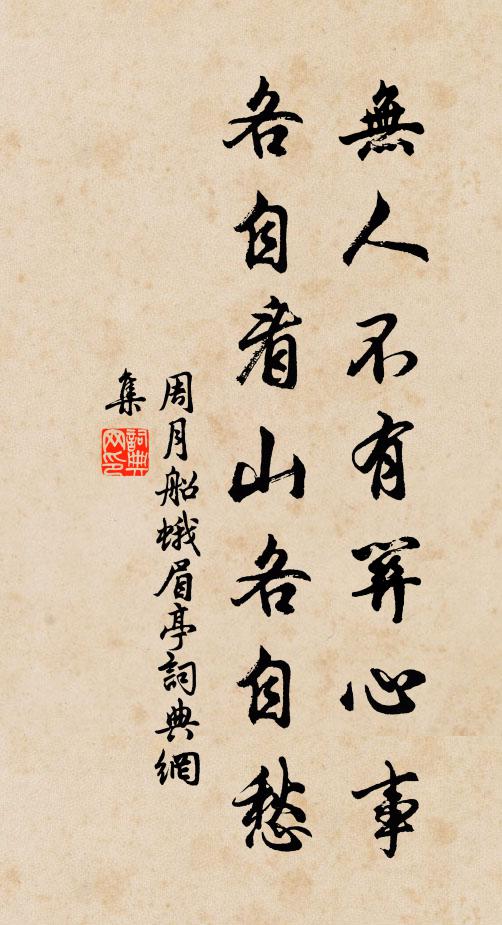 無人不有關心事
各自看山各自愁
周月船蛾眉亭詞典網
集
詞典
网印